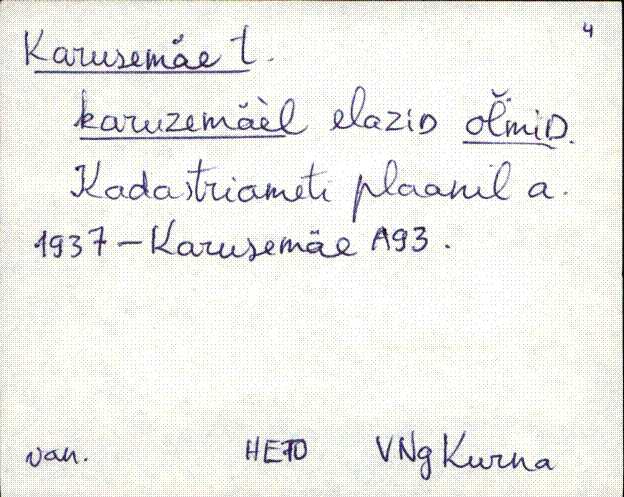 4
Karusemäe t.
karuzemäèl elaziD oľmiD.
Kadastriameti plaanil a.
1937 – Karusemäe A93.
van. HETO VNg Kurna